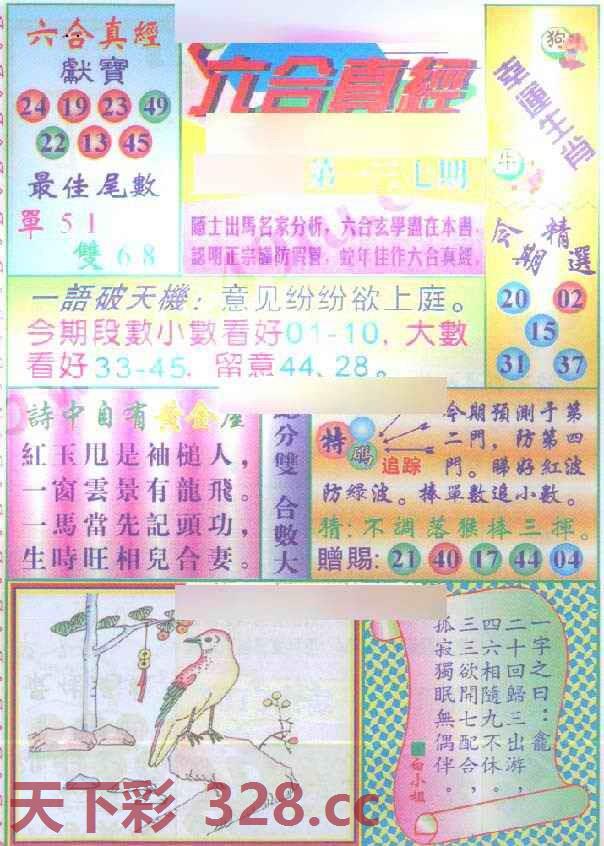 六合真經
獻寶
24 19 23 49
22 13 45
最佳尾數
單 51
雙 68
六合真經
七期
隱士出馬名家分析，六合玄學盡在本書，
認明正宗謹防假冒，蛇年佳作六合真經，
狗
幸運生肖
牛
今期精選
20 02
15
31 37
一語破天機：意见纷纷欲上庭。
今期段數小數看好01-10，大數
看好33-45，留意44、28。
詩中自有黃金屋
紅玉甩是袖槌人，
一窗雲景有龍飛。
一馬當先記頭功，
生時旺相兒合妻。
分雙 合數大
特碼
追踪
今期預測于第
二門，防第四
門。睇好紅波
防綠波。捧單數追小數。
猜：不調落猴捧三揮。
贈賜：21 40 17 44 04
一字之曰：龕
二十回歸三出游，
四六相隨九不休。
三三欲開七配合，
孤寂獨眠無偶伴。
白小姐
天下彩 328.cc